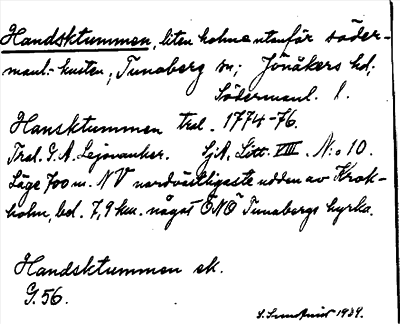 Handsktummen, liten holme utanför söder-
manl:-kusten, Tunaberg sn; Jönåkers hd;
Södermanl. l.
Hansktummen tral. 1774-76.
Tral. G. A. Lejonanker. SjA. Litt. VIII. N:o 10.
Läge 700 m. NV nordvästligaste udden av Krok-
holm, bel. 7,9 km. något ÖNÖ Tunabergs kyrka.
Handsktummen ek.
G. 56.
1939.